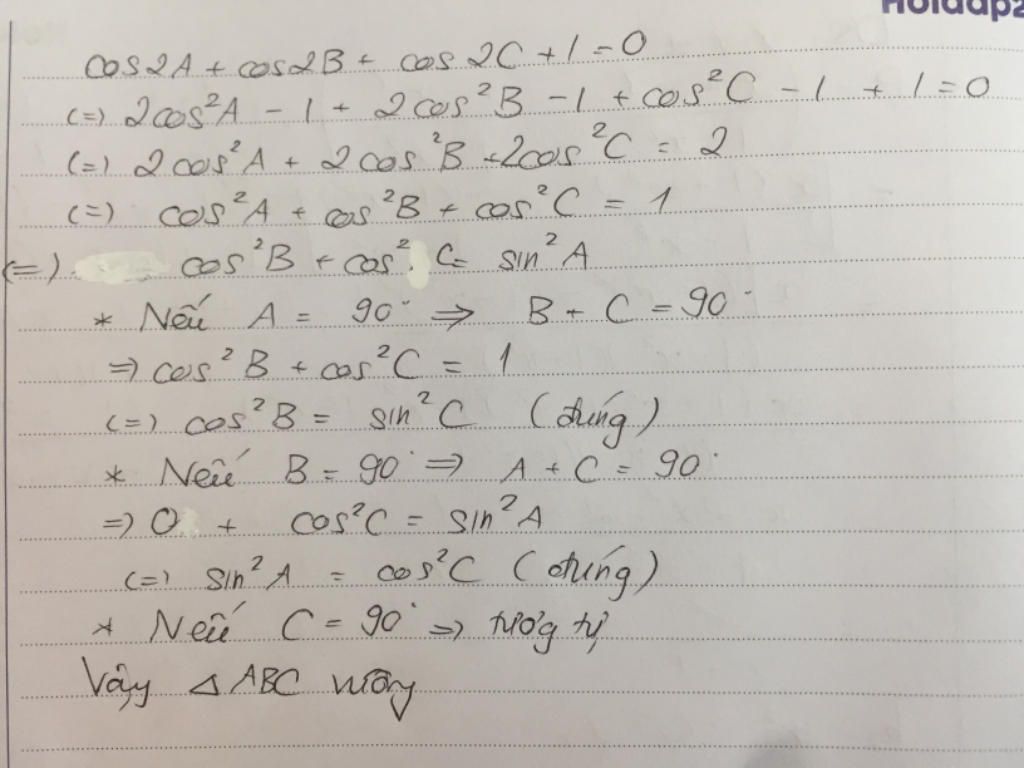 Hoidap2
cos2A + cos2B + cos2C + 1 = 0
(=) 2cos²A - 1 + 2cos²B - 1 + cos²C - 1 + 1 = 0
(=) 2cos²A + 2cos²B + 2cos²C = 2
(=) cos²A + cos²B + cos²C = 1
(=) cos²B + cos²C = sin²A
* Nếu A = 90° => B + C = 90°
=> cos²B + cos²C = 1
(=) cos²B = sin²C (đúng)
* Nếu B = 90° => A + C = 90°
=> 0 + cos²C = sin²A
(=) sin²A = cos²C (đúng)
* Nếu C = 90° => tương tự
Vậy △ABC vuông